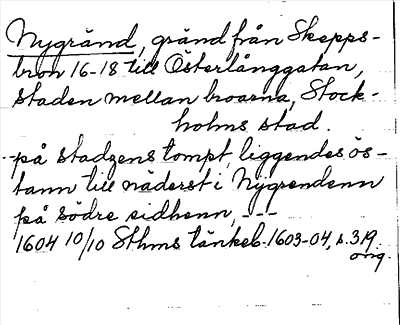 Nygränd, gränd från Skepps-
bron 16-18 till Österlånggatan,
staden mellan broarna, Stock-
holms stad.
-på stadzens tompt liggendes ös-
tann till näderst i Nygrendenn
på södre sidhenn, ---
1604 10/10 Sthms tänkeb. 1603-04, s. 319.
orig.